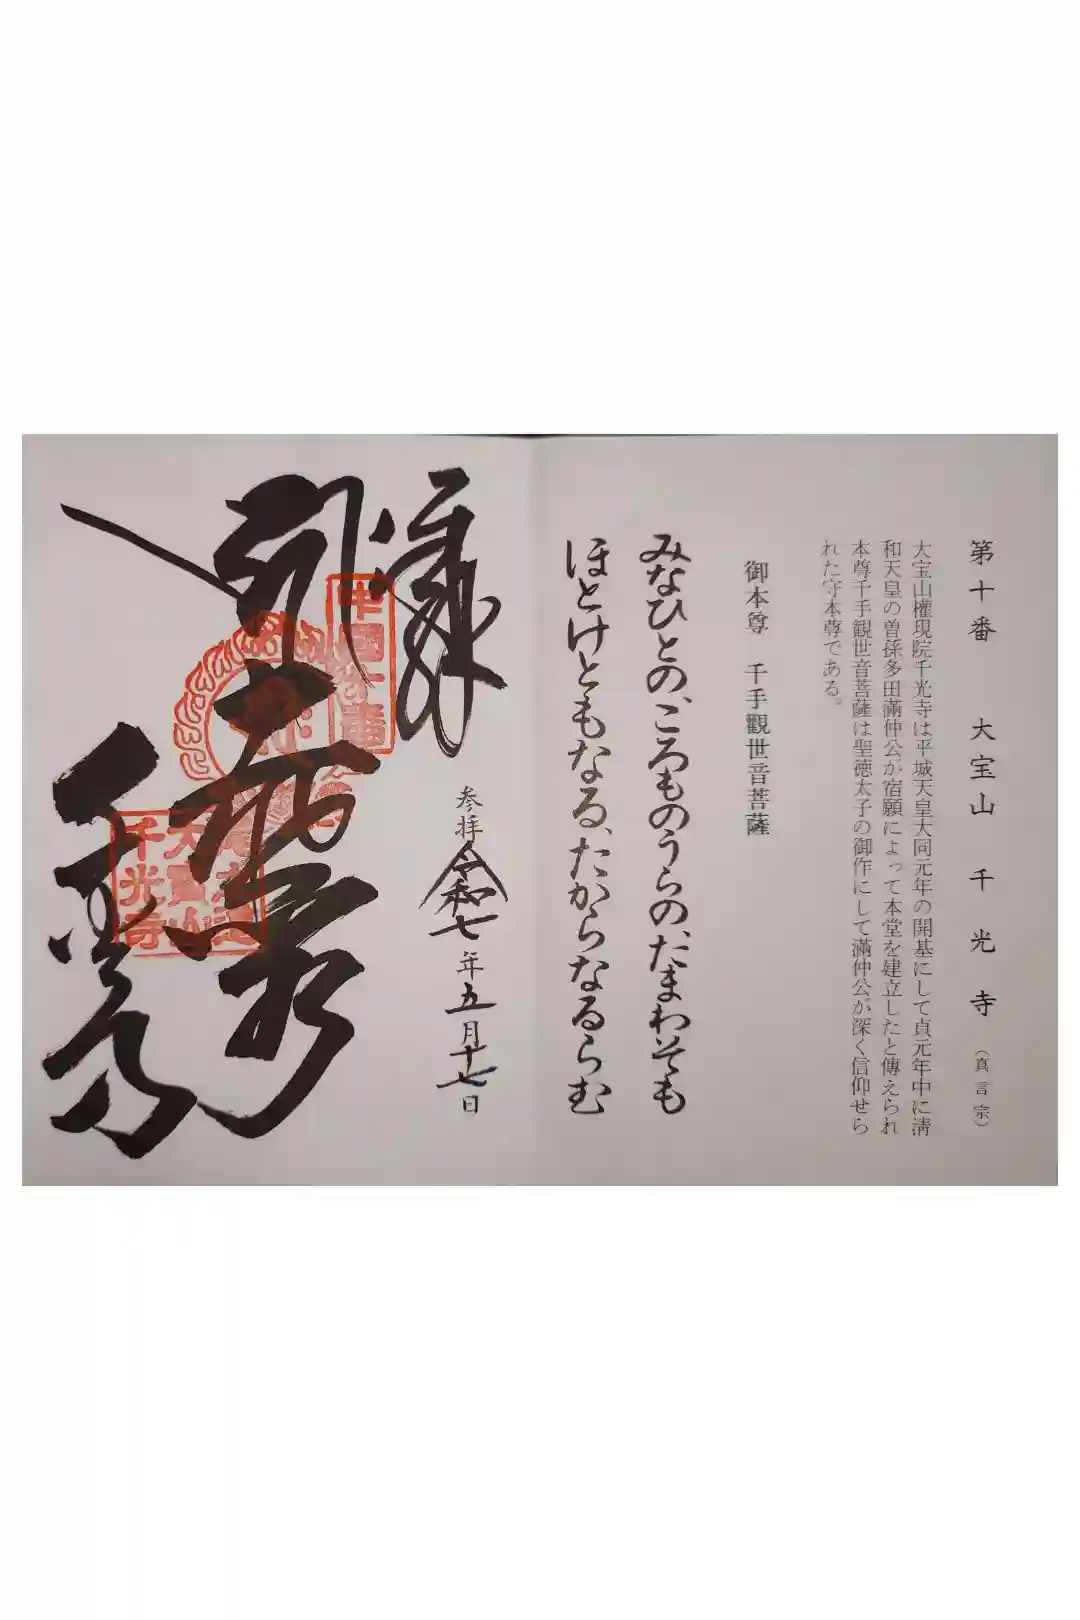 第十番 大宝山 千光寺 (真言宗)
大宝山權現院千光寺は平城天皇大同元年の開基にして貞元年中に淸
和天皇の曽孫多田滿仲公が宿願によって本堂を建立したと傳えられ
本尊千手観世音菩薩は聖徳太子の御作にして滿仲公が深く信仰せら
れた守本尊である。
御本尊 千手觀世音菩薩
みなひとの、ころものうらの、たまわそも
ほとけともなる、たからなるらむ
奉拝
参拝 令和七年五月十七日
中國十番
千光寺